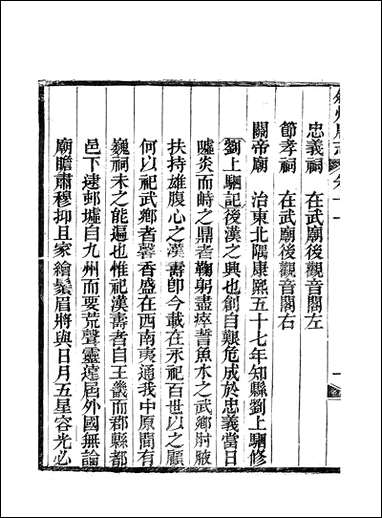 忠義祠　在武廟後觀音閣左
節孝祠　在武廟後觀音閣右
關帝廟　治東北隅康熙五十七年知縣劉上駰修
劉上駰記後漢之興也創自艱危成於忠義當日
噓炎而峙之鼎者鞠躬盡瘁訾魚水之武鄉肘腋
扶持雄腹心之漢壽卽今載在永祀百世以之顧
何以祀武鄉者馨香盛在西南夷通我中原閒有
巍祠未之能遍也惟祀漢壽者自王畿而郡縣都
邑下逮邨墟自九州而要荒聲靈遠屆外國無論
廟瞻肅穆抑且家繪鬚眉將與日月五星容光必